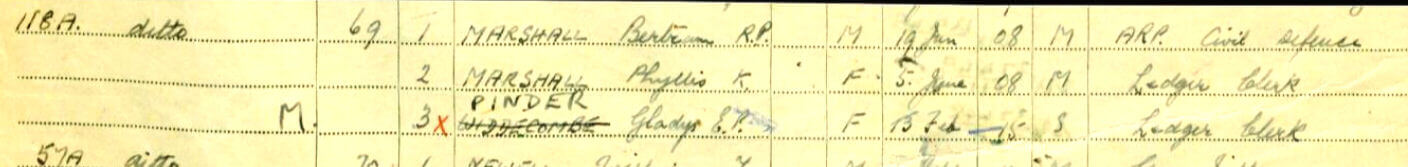 118A. ditto 69 1 MARSHALL Bertram R.P. M 19 Jan 08 M ARP. Civil Defence
2 MARSHALL Phyllis K. F 5 June 08 M Ledger Clerk
PINDER
M. 3 X WIDDECOMBE Gladys E.P. F 15 Feb 15 S Ledger Clerk
57A ditto 70 1